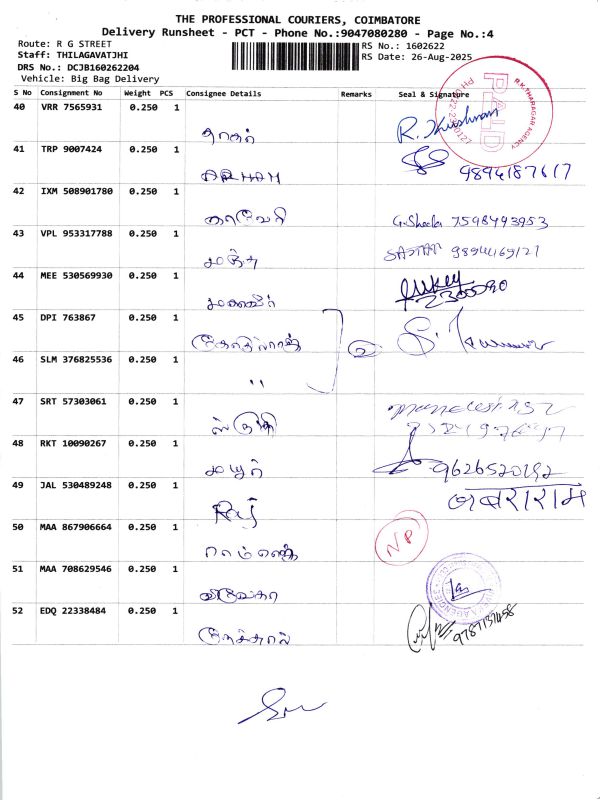 THE PROFESSIONAL COURIERS, COIMBATORE
Delivery Runsheet - PCT - Phone No.:9047080280 - Page No.:4
Route: R G STREET
Staff: THILAGAVATJHI
RS No.: 1602622
DRS No.: DCJB160262204
RS Date: 26-Aug-2025
Vehicle: Big Bag Delivery
S No Consignment No Weight PCS Consignee Details Remarks Seal & Signature
40 VRR 7565931 0.250 1
R. Krishnan
R.K.THARAGAR AGENCY
PAID
41 TRP 9007424 0.250 1
9894187617
42 IXM 508901780 0.250 1
காவேரி G. Sheela 7598493953
43 VPL 953317788 0.250 1
9894469121
44 MEE 530569930 0.250 1
45 DPI 763867 0.250 1
46 SLM 376825536 0.250 1
"
47 SRT 57303061 0.250 1
ஸ்ருதி
48 RKT 10090267 0.250 1
மயூர் 9626520192
49 JAL 530489248 0.250 1
Raj जबराराम
50 MAA 867906664 0.250 1
NP
51 MAA 708629546 0.250 1
விவேகா
52 EDQ 22338484 0.250 1
9787137458